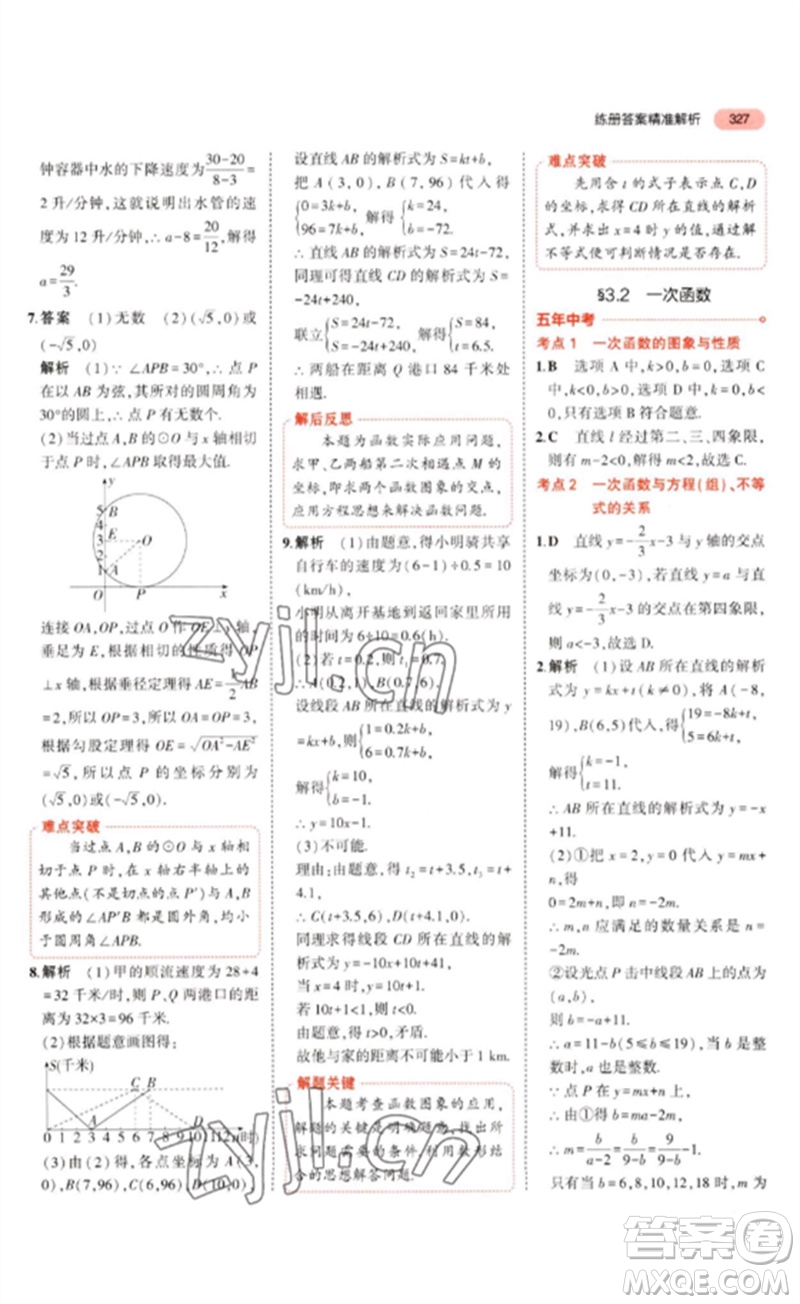 练册答案精准解析 327
钟容器中水的下降速度为\frac{30-20}{8-3}=
2升/分钟,这就说明出水管的速
度为12升/分钟,∴a-8=\frac{20}{12},解得
a=\frac{29}{3}.
7.答案 (1)无数 (2)(√5,0)或
(-√5,0)
解析 (1)∵∠APB=30°,∴点P
在以AB为弦,其所对的圆周角为
30°的圆上,∴点P有无数个.
(2)当过点A,B的⊙O与x轴相切
于点P时,∠APB取得最大值.
y
5 B
4
3 E O
2
1 A
O P x
连接OA,OP,过点O作OE⊥y轴,
垂足为E,由切线的性质得OP
⊥x轴,根据垂径定理得AE=\frac{1}{2}AB
=2,所以OP=3,所以OA=OP=3,
根据勾股定理得OE=√(OA²-AE²)
=√5,所以点P的坐标分别为
(√5,0)或(-√5,0).
难点突破
当过点A,B的⊙O与x轴相
切于点P时,在x轴右半轴上的
其他点(不是切点的点P')与A,B
形成的∠AP'B都是圆外角,均小
于圆周角∠APB.
8.解析 (1)甲的顺流速度为28+4
=32千米/时,则P,Q两港口的
距离为32×3=96千米.
(2)根据题意画图得:
S(千米)
C B
A D
0 1 2 3 4 5 6 7 8 9 101112 t(时)
(3)由(2)得,各点坐标为A(3,
0),B(7,96),C(6,96),D(10,0).
设直线AB的解析式为S=kt+b,
把A(3,0),B(7,96)代入得
{0=3k+b, 96=7k+b, 解得{k=24, b=-72.
∴直线AB的解析式为S=24t-72.
同理可得直线CD的解析式为S=
-24t+240.
联立{S=24t-72, S=-24t+240, 解得{S=84, t=6.5.
∴两船在距离Q港口84千米处
相遇.
解后反思
本题为函数实际应用问题,
求甲、乙两船第二次相遇点M的
坐标,即求两个函数图象的交点,
应用方程思想来解决函数问题.
9.解析 (1)由题意,得小明骑共享
自行车的速度为(6-1)÷0.5=10
(km/h),
小明从离开基地到返回家里所用
的时间为6÷10=0.6(h).
(2)若t=0.2,则t₁=0.7.
∴A(0.2,1),B(0.7,6).
设线段AB所在直线的解析式为y
=kx+b,则{1=0.2k+b, 6=0.7k+b.
解得{k=10, b=-1.
∴y=10x-1.
(3)不可能.
理由:由题意,得t₂=t+3.5,t₃=t+
4.1,
∴C(t+3.5,6),D(t+4.1,0).
同理求得线段CD所在直线的解
析式为y=-10x+10t+41.
当x=4时,y=10t+1.
若10t+1<1,则t<0.
由题意,得t>0,矛盾.
故他与家的距离不可能小于1 km.
解题关键
本题考查函数图象的应用,
解题的关键是学会构建一次函
数解决问题,学会利用数形结
合的思想解答问题.
难点突破
先用含t的式子表示点C,D
的坐标,求得CD所在直线的解析
式,并求出x=4时y的值,通过解
不等式便可判断情况是否存在.
§3.2 一次函数
五年中考
考点1 一次函数的图象与性质
1.B 选项A中,k>0,b=0,选项C
中,k<0,b>0,选项D中,k=0,b<
0,只有选项B符合题意.
2.C 直线l经过第二、三、四象限,
则有m-2<0,故选C.
考点2 一次函数与方程(组)、不等
式的关系
1.D 直线y=-\frac{2}{3}x-3与y轴的交点
坐标为(0,-3),若直线y=a与直线
y=-\frac{2}{3}x-3的交点在第四象限,
则a<-3,故选D.
2.解析 (1)设AB所在直线的解析
式为y=kx+t(k≠0),将A(-8,
19),B(6,5)代入,得{19=-8k+t, 5=6k+t.
解得{k=-1, t=11.
∴AB所在直线的解析式为y=-x
+11.
(2)①把(2,0)代入y=mx
+n,得
0=2m+n,即n=-2m,
∴m,n应满足的数量关系为n=
-2m.
②设光点P击中线段AB上的点为
(a,b),
则b=-a+11.
∴a=11-b(5≤b≤19),当b是整
数时,a也是整数.
∵点P在y=mx+n上,
∴b=ma+n=ma-2m,
∴m=\frac{b}{a-2}=\frac{b}{9-b}=-1+\frac{9}{9-b}.
只有当b=6,8,10,12,18时,m为
zyjl.cn
zyjl.cn
答案圈
MXQE.COM